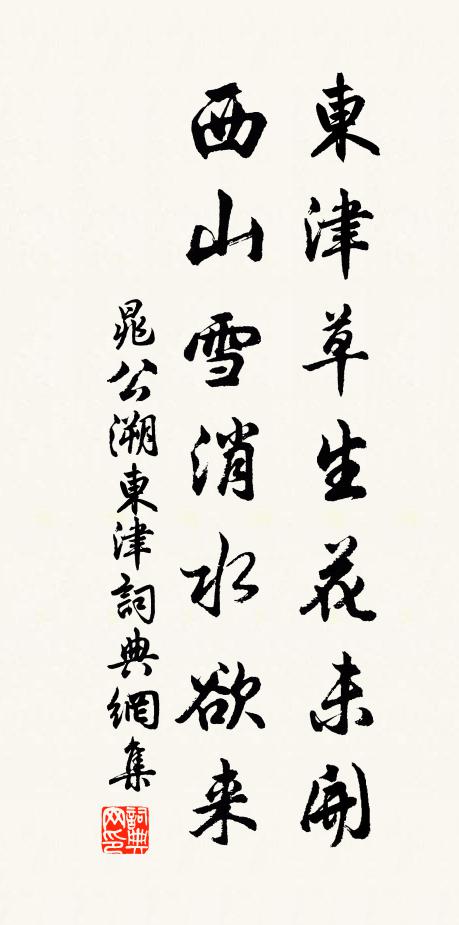 東津草生花未開
西山雪消水欲来
晁公溯東津詞典網集
詞典网印